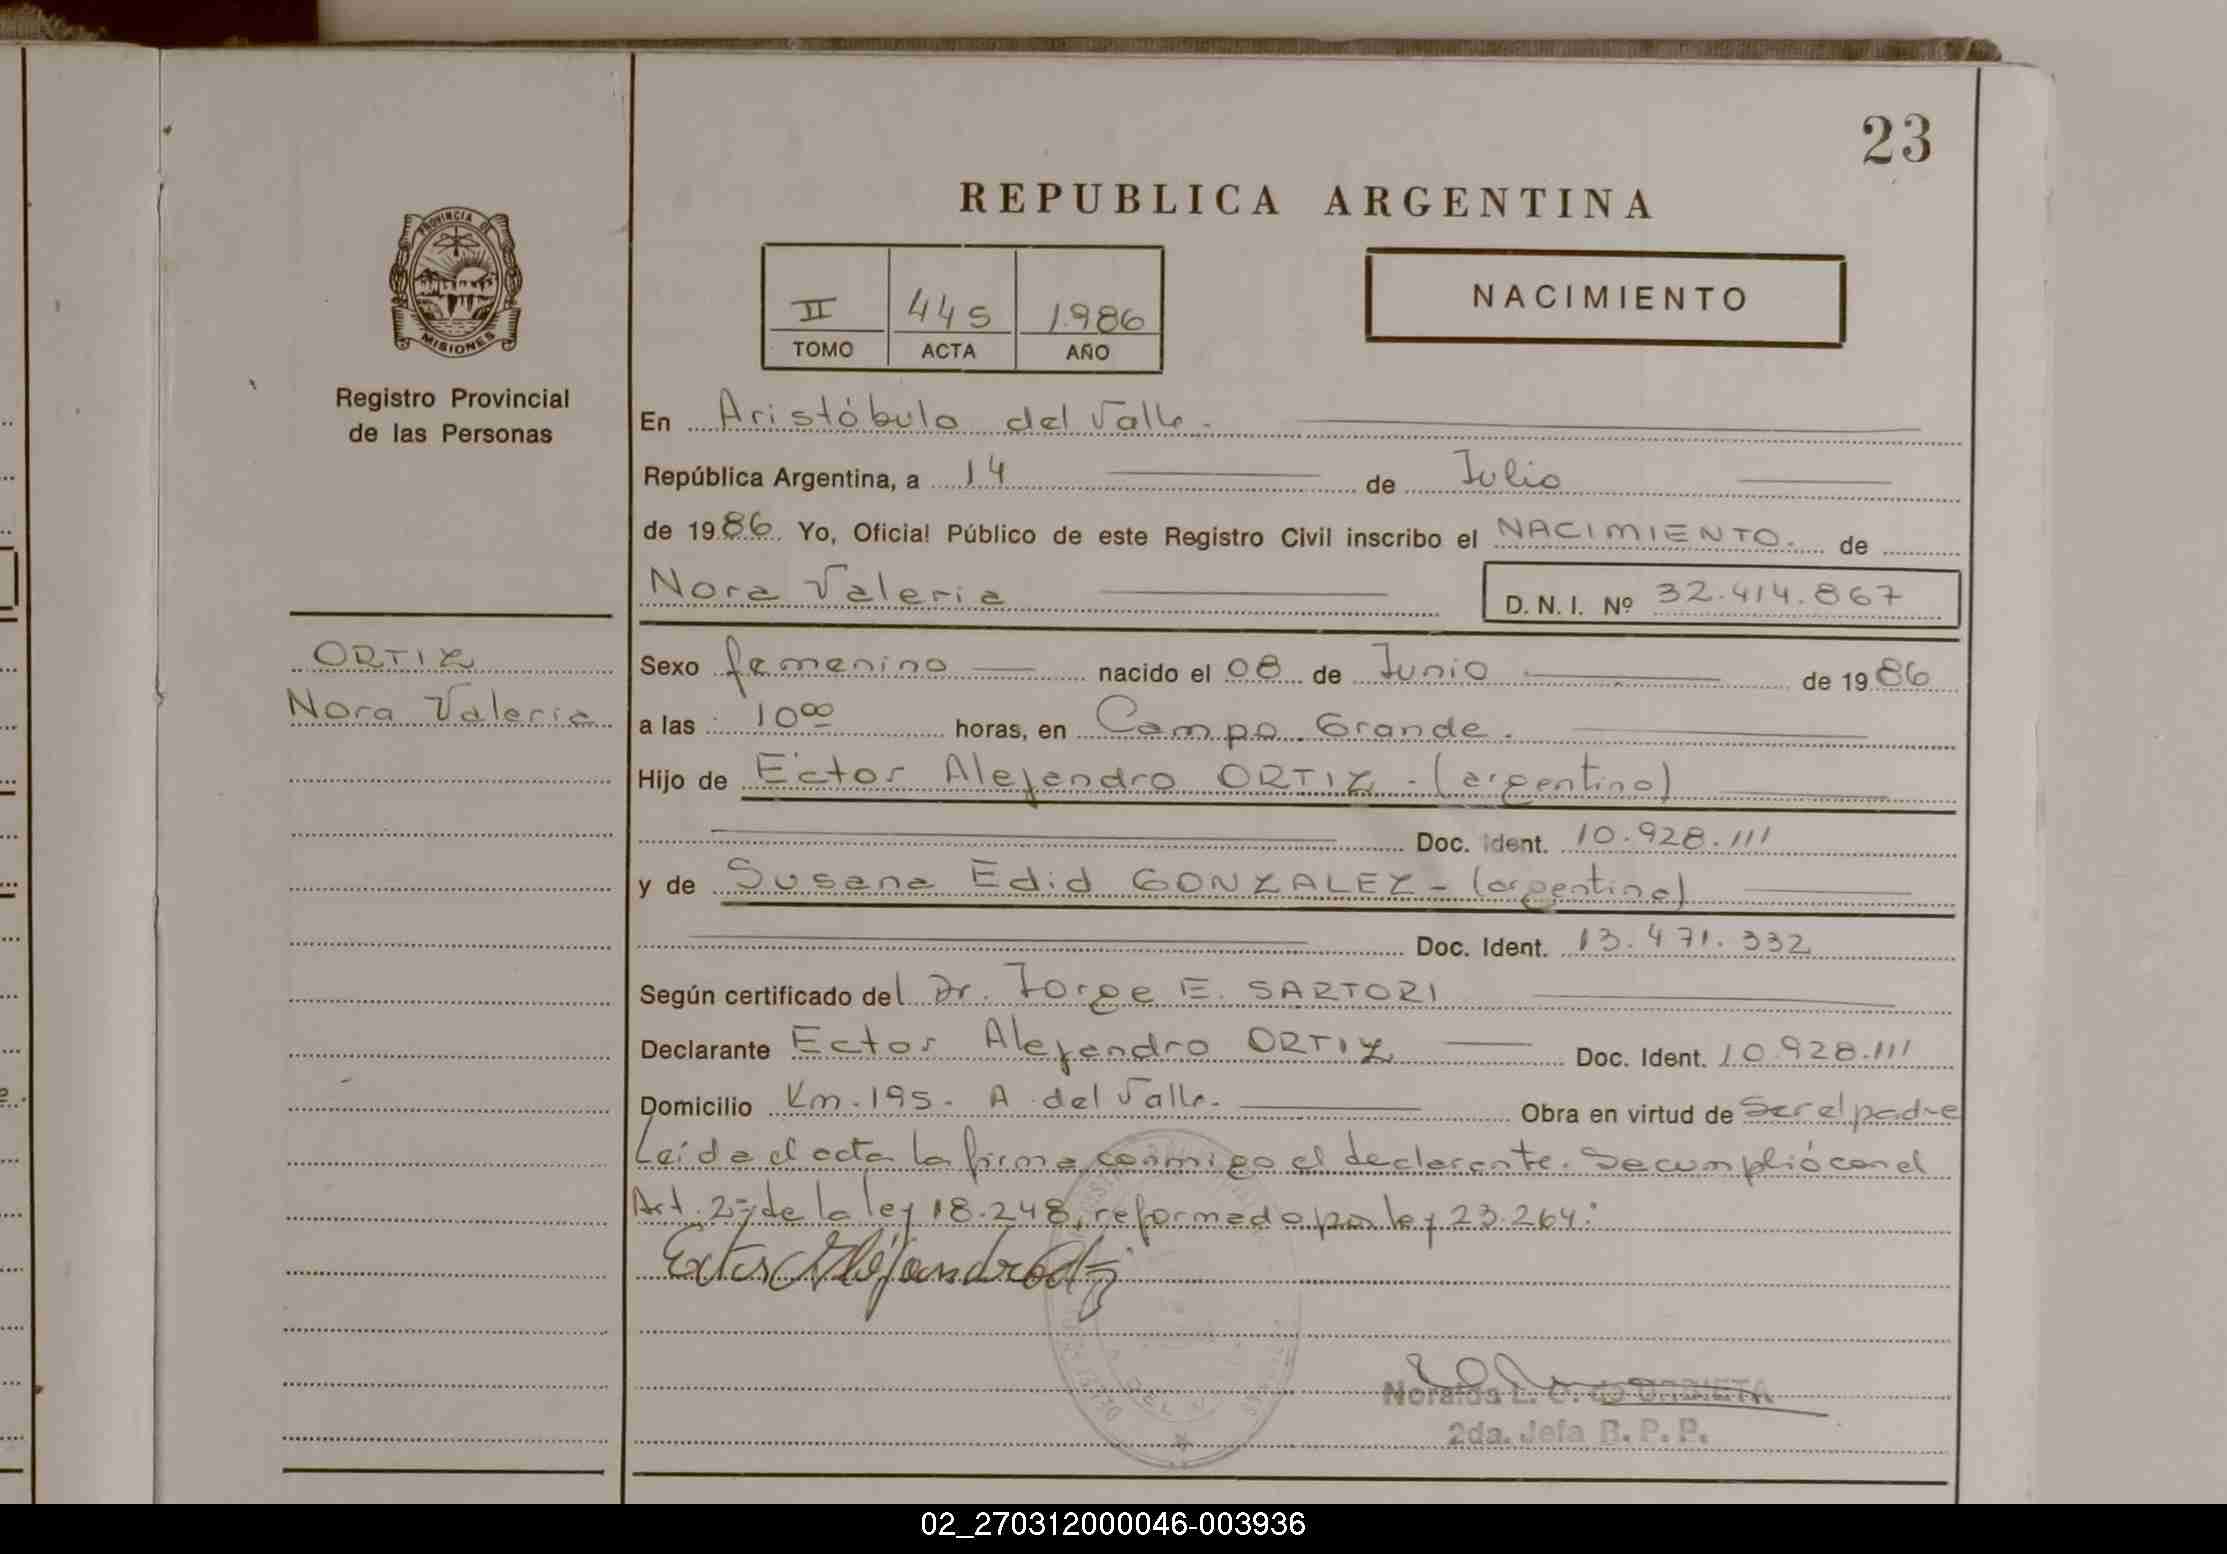 23
REPUBLICA ARGENTINA
PROVINCIA DE
MISIONES
Registro Provincial
de las Personas
II 445 1.986
TOMO ACTA AÑO
NACIMIENTO
En Aristóbulo del Valle.
República Argentina, a 14 de Julio
de 1986. Yo, Oficial Público de este Registro Civil inscribo el NACIMIENTO. de
Nora Valeria
D. N. I. Nº 32.414.867
ORTIZ
Nora Valeria
Sexo femenino nacido el 08 de Junio de 1986
a las 10⁰⁰ horas, en Campo Grande.
Hijo de Ector Alejandro ORTIZ - (argentino)
Doc. Ident. 10.928.111
y de Susana Edid GONZALEZ - (argentina)
Doc. Ident. 13.471.332
Según certificado del Dr. Jorge E. SARTORI
Declarante Ector Alejandro ORTIZ Doc. Ident. 10.928.111
Domicilio Km. 195. A. del Valle. Obra en virtud de Ser el padre
Leída el acta la firma conmigo el declarante. Se cumplió con el
Art. 2º de la ley 18.248, reformado por ley 23.264.
Ector Alejandro Ortiz
2da. Jefa R. P. P.
02_270312000046-003936